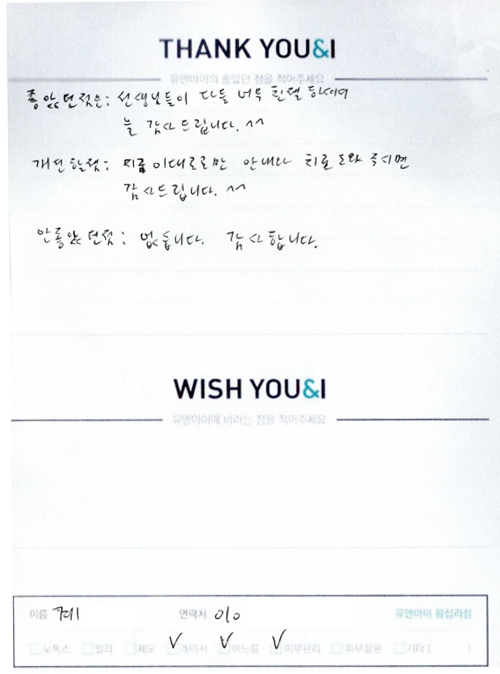 THANK YOU&I
유앤아이의 좋았던 점을 적어주세요
좋았던점은: 선생님들이 다들 너무 친절하셔서
늘 감사드립니다. ^^
개선할점: 지금 이대로로만 안내나 치료 도와주시면
감사드립니다. ^^
안좋았던점: 없습니다. 감사합니다.
WISH YOU&I
유앤아이에 바라는 점을 적어주세요
이름 연락처 010 유앤아이 왕십리점
보톡스 필러 제모 레이저 여드름 피부관리 피부질환 기타 ( )